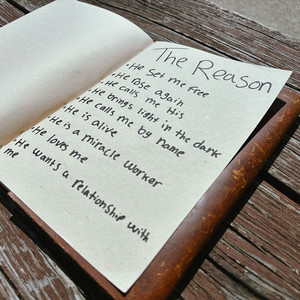 The Reason
· He set me free
· He rose again
· He calls me His
· He brings light in the dark
· He calls me by name
· He is alive
· He is a miracle worker
· He loves me
· He wants a relationship with
me